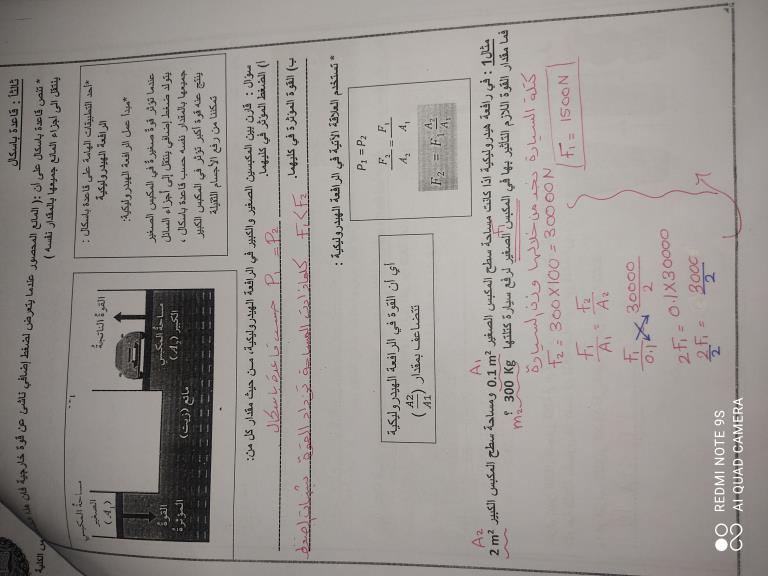 ثالثاً : قاعدة باسكال
* تنص قاعدة باسكال على أن :( المائع المحصور عندما يتعرض لضغط إضافي ناشئ عن قوة خارجية فإن هذا
ينتقل الى أجزاء المائع جميعها بالمقدار نفسه )
*أحد التطبيقات المهمة على قاعدة باسكال :
الرافعة الهيدروليكية
*مبدأ عمل الرافعة الهيدروليكية:
عندما تؤثر قوة صغيرة في المكبس الصغير
يتولد ضغط إضافي ينتقل إلى أجزاء السائل
جميعها بالمقدار نفسه حسب قاعدة باسكال ،
ينتج عنه قوة أكبر تؤثر في المكبس الكبير
تمكننا من رفع الأجسام الثقيلة
مساحة المكبس
الصغير
(A₁)
القوة
المؤثرة
القوة الناتجة
مساحة المكبس
الكبير (A₂)
مائع (زيت)
سؤال : قارن بين المكبسين الصغير والكبير في الرافعة الهيدروليكية، من حيث مقدار كل من:
أ) الضغط المؤثر في كليهما.
P₁ = P₂ حسب قاعدة باسكال
ب) القوة المؤثرة في كليهما.
F₁ < F₂ كلما زادت المساحة تزداد القوة بثبات الضغط
* تستخدم العلاقة الآتية في الرافعة الهيدروليكية :
P₁ = P₂
F₂/A₂ = F₁/A₁
F₂ = F₁ A₂/A₁
أي أن القوة في الرافعة الهيدروليكية
تتضاعف بمقدار (A2/A1)
مثال1 : في رافعة هيدروليكية اذا كانت مساحة سطح المكبس الصغير 0.1 m² ومساحة سطح المكبس الكبير 2 m²
A₁
A₂
فما مقدار القوة اللازم التأثير بها في المكبس الصغير لرفع سيارة كتلتها 300 Kg ؟
F₁
m₂
كتلة السيارة نجد من خلالها وزن السيارة
F₂ = 300 × 100 = 30000 N
F₁/A₁ = F₂/A₂
F₁/0.1 = 30000/2
2F₁ = 0.1 × 30000
2F₁/2 = 3000/2
F₁ = 1500 N
REDMI NOTE 9S
AI QUAD CAMERA